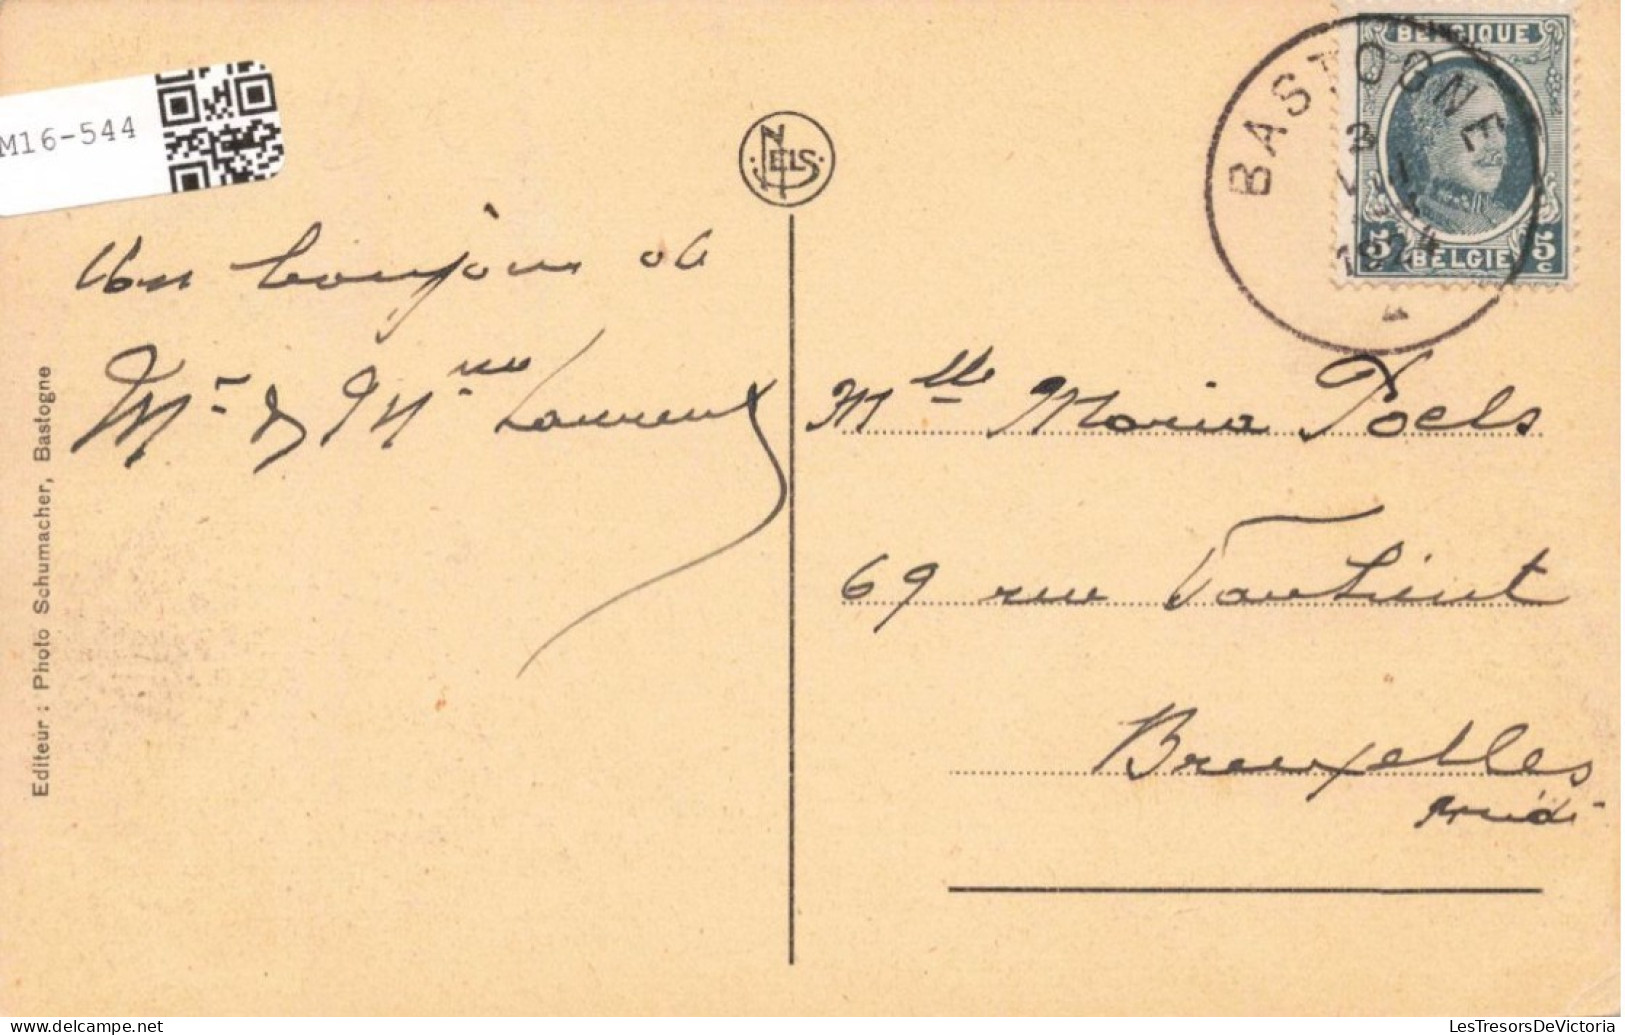 M16-544
NELS
BASTOGNE
1924
BELGIQUE
5 BELGIE 5
c
Un bonjour de
Mr & Mme Laurent
Editeur : Photo Schumacher, Bastogne
Mlle Maria Poels
69 rue
Bruxelles
LesTresorsDeVictoria